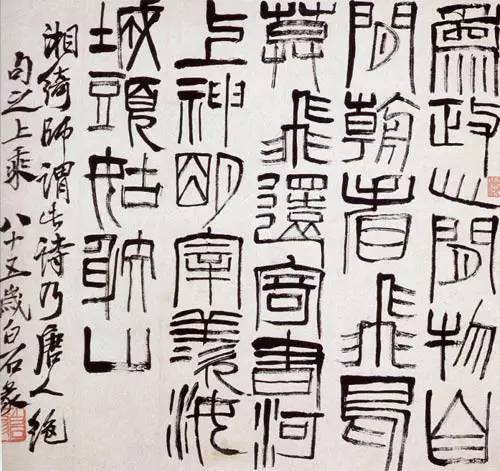 為政心閒物自
閒朝看飛鳥
莫飛還寄書河
上神明宰羨
城頭姑射山
湘綺師謂此詩乃唐人絕
句之上乘 八十五歲白石篆